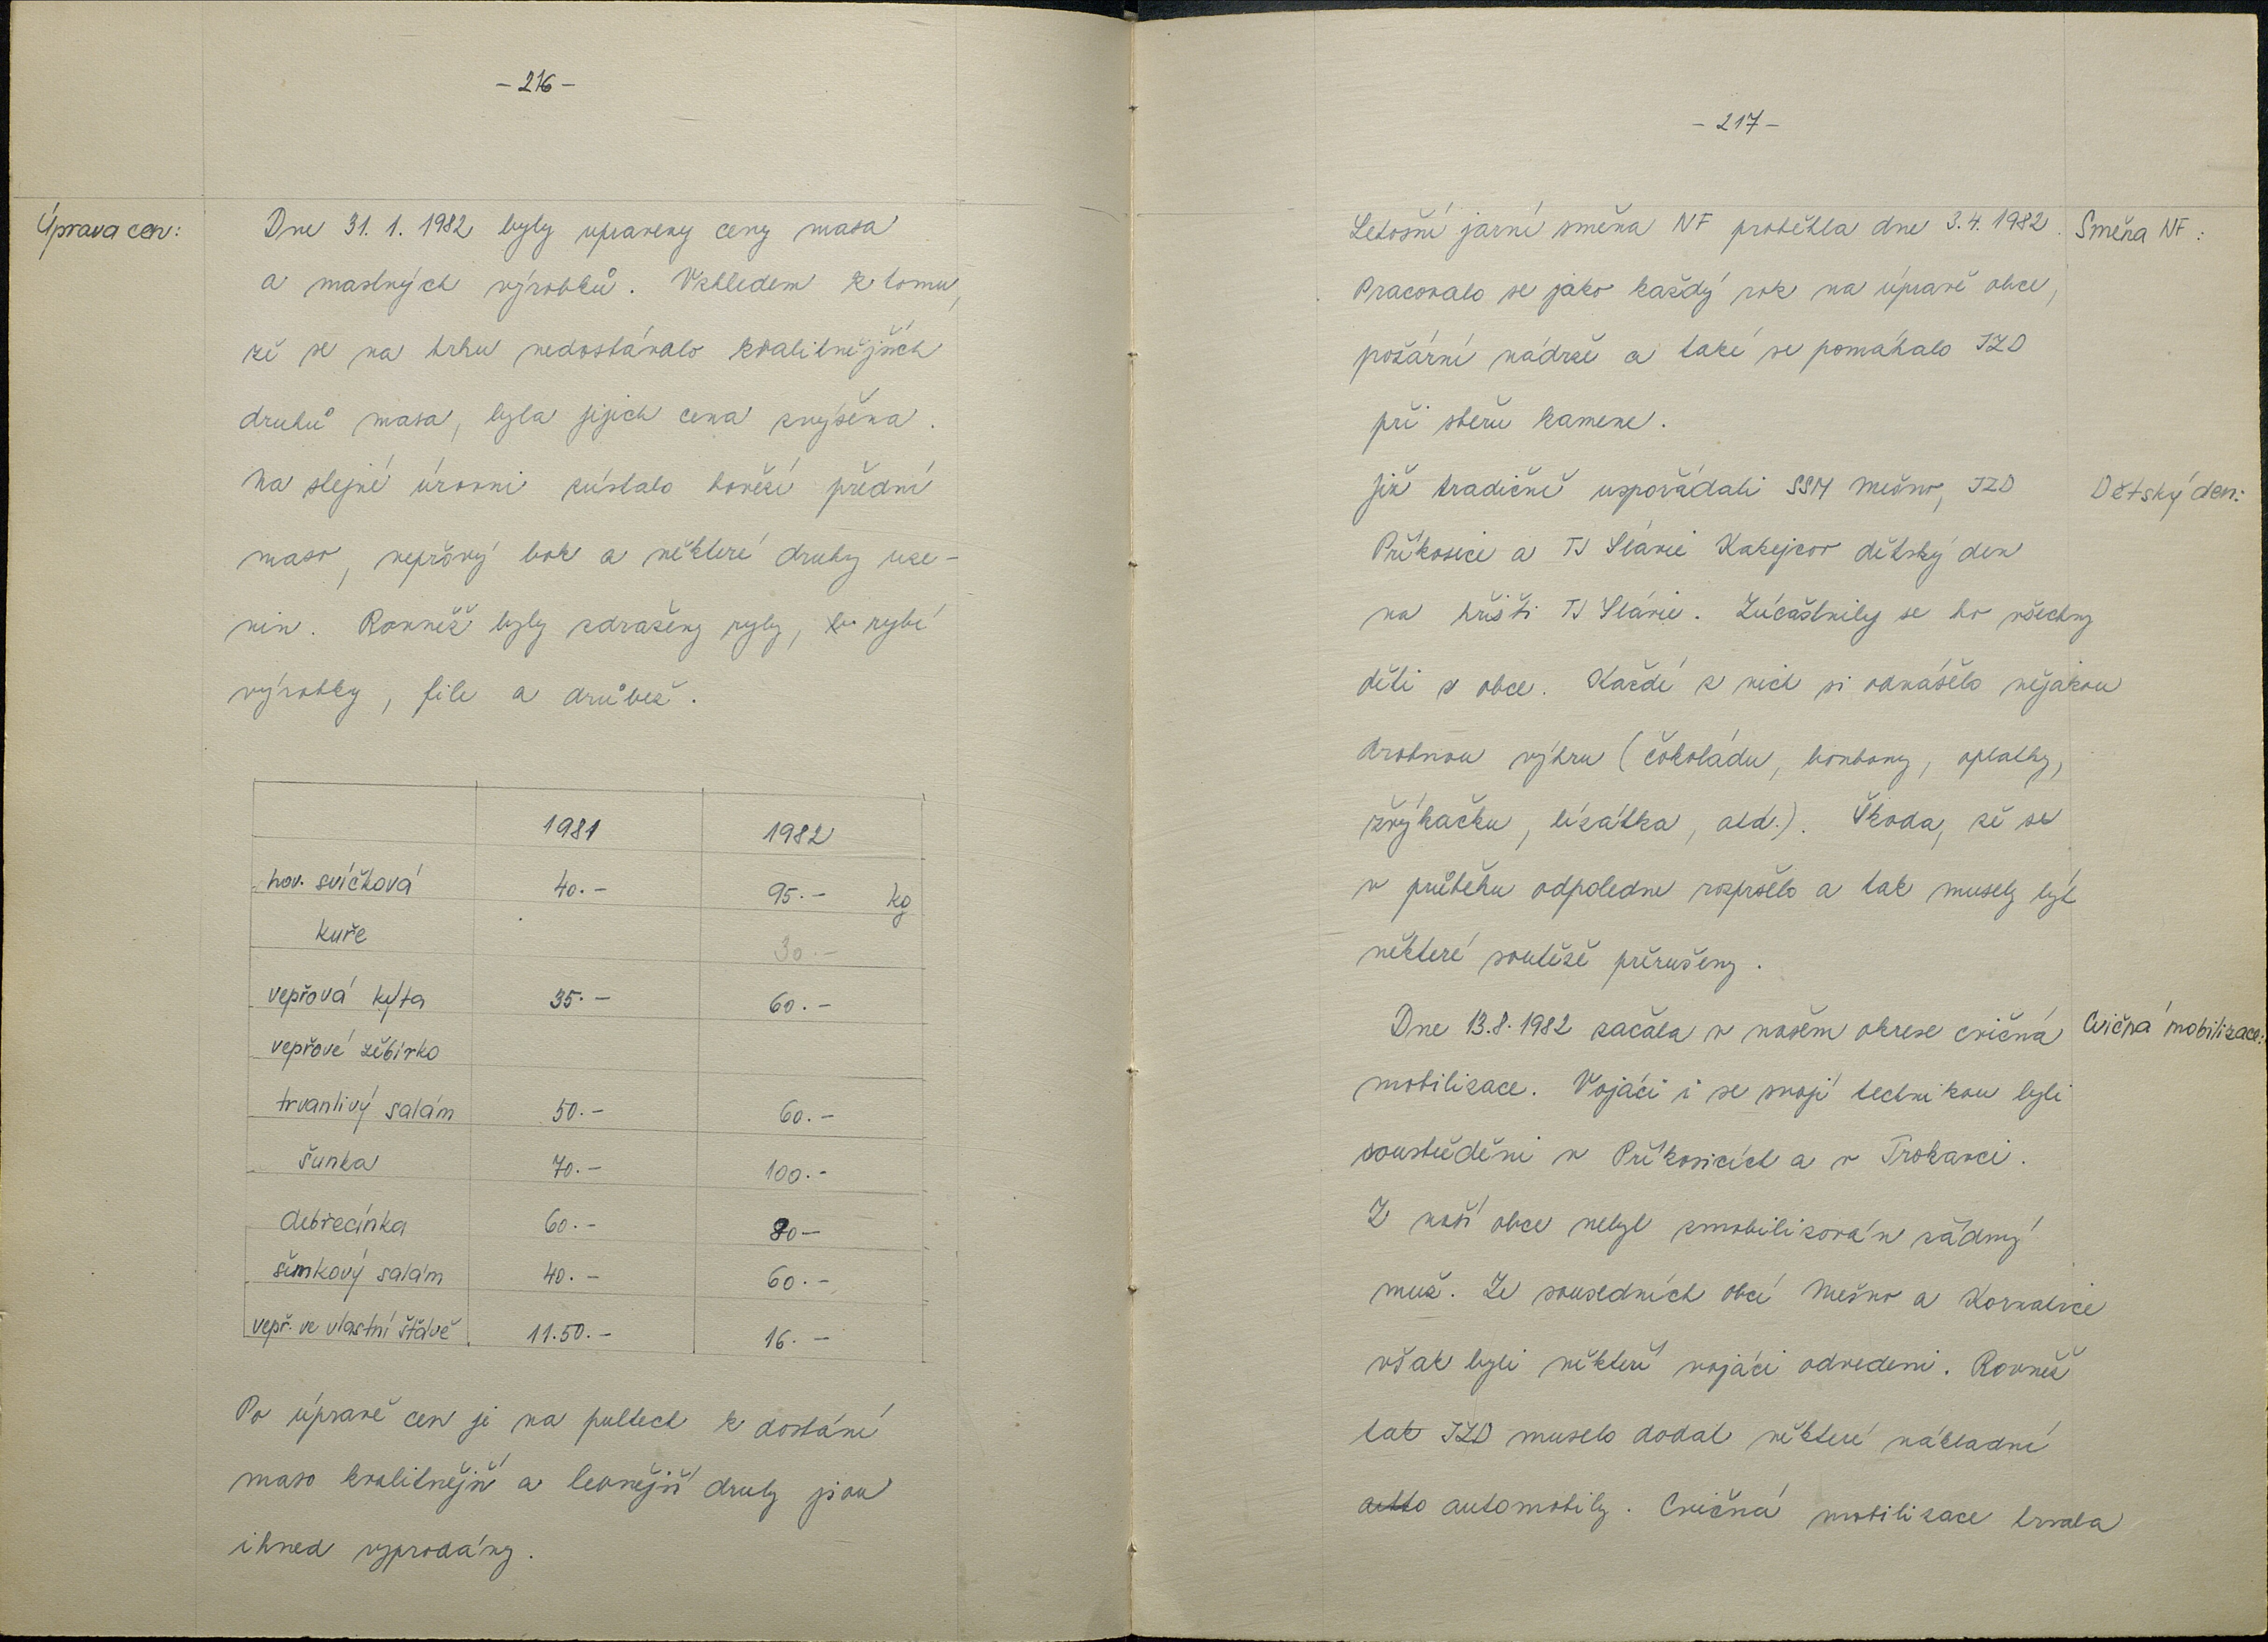 - 216 -
Úprava cen:
Dne 31. 1. 1982 byly upraveny ceny masa
a masných výrobků. Vzhledem k tomu,
že se na trhu nedostávalo kvalitnějších
druhů masa, byla jejich cena zvýšena.
Na stejné úrovni zůstalo hovězí přední
maso, vepřový bok a některé druhy uze-
nin. Rovněž byly zdraženy ryby, rybí
výrobky, file a drůbež.
1981 1982
hov. svíčková 40.- 95.- kg
kuře 30.-
vepřová kýta 35.- 60.-
vepřové žebírko
trvanlivý salám 50.- 60.-
šunka 70.- 100.-
debrecínka 60.- 80-
šunkový salám 40.- 60.-
vepř. ve vlastní šťávě 11.50.- 16.-
Po úpravě cen je na pultech k dostání
maso kvalitnější a levnější druhy jsou
ihned vyprodány.
- 217 -
Letošní jarní směna NF proběhla dne 3.4. 1982.
Směna NF:
Pracovalo se jako každý rok na úpravě obce,
požární nádrže a také se pomáhalo JZD
při sběru kamene.
Již tradičně uspořádali SSM Mešno, JZD
Dětský den:
Příkosice a TJ Slávie Kakejcov dětský den
na hřišti TJ Slávie. Zúčastnily se ho všechny
děti z obce. Každé z nich si odnášelo nějakou
drobnou výhru (čokoládu, bonbony, oplatky,
žvýkačku, lízátka, atd.). Škoda, že se
v průběhu odpoledne rozpršelo a tak musely být
některé soutěže přerušeny.
Dne 13.8. 1982 začala v našem okrese cvičná
Cvičná mobilizace:
mobilizace. Vojáci i se svojí technikou byli
soustředěni v Příkosicích a v Trokavci.
Z naší obce nebyl zmobilizován žádný
muž. Ze sousedních obcí Mešno a Kornatice
však byli někteří vojáci odvedeni. Rovněž
tak JZD muselo dodat některé nákladní
auto automobily. Cvičná mobilizace trvala